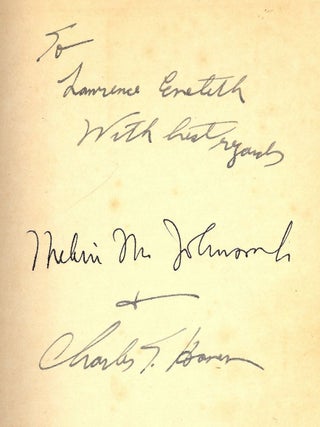 To
Lawrence
With best regards
Melvin M. Johnson Jr
+
Charles T. Haven